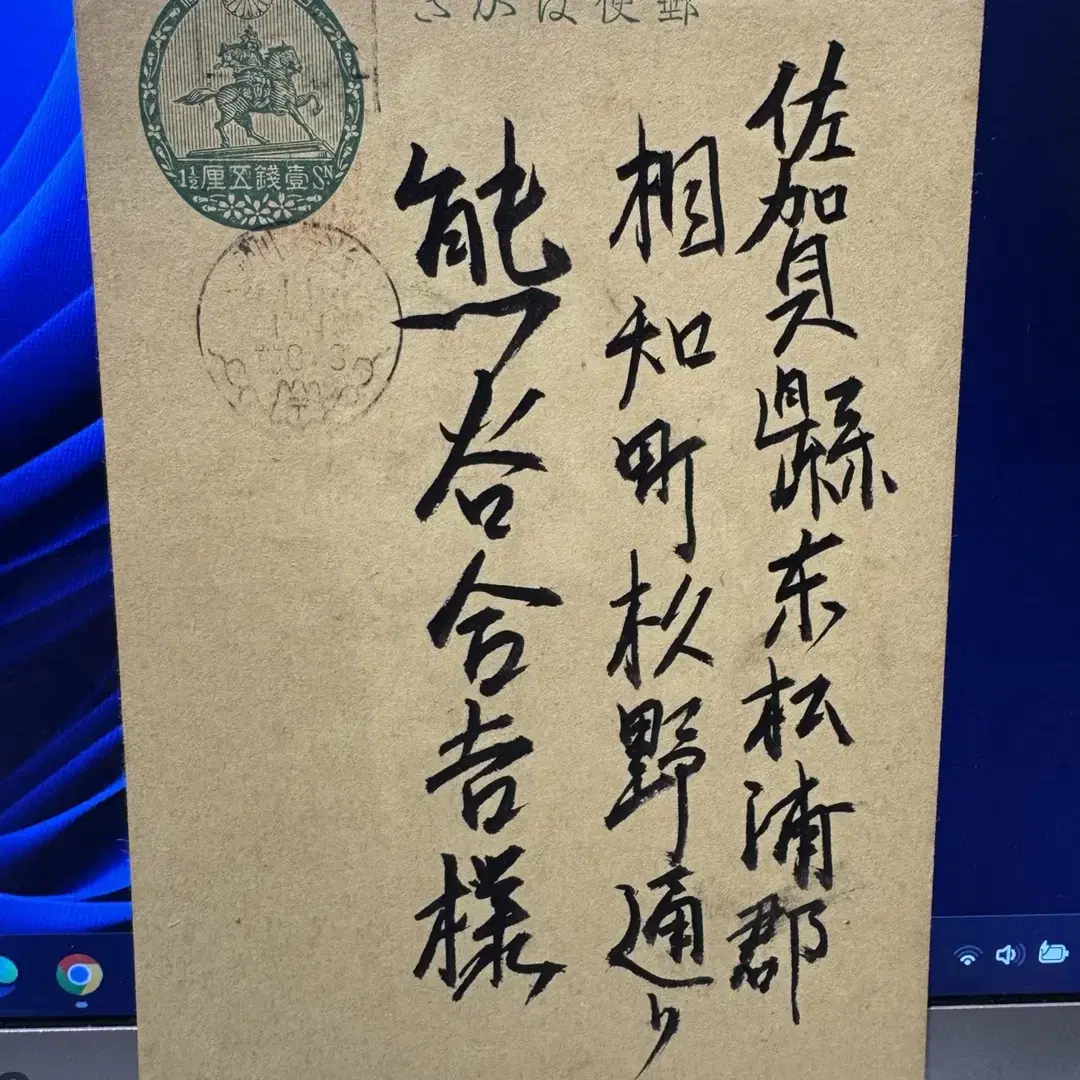 郵便はかき
SN壹錢五厘1½
佐賀縣东松浦郡
相知町杦野通り
熊谷合吉様